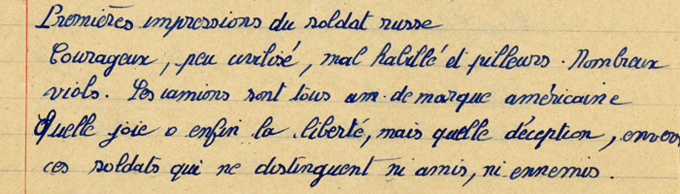 Premières impressions du soldat russe
Courageux, peu civilisé, mal habillé et pilleurs. Nombreux
viols. Les camions sont tous de marque américaine
Quelle joie o enfin la liberté, mais quelle déception, envers
ces soldats qui ne distinguent ni amis, ni ennemis.